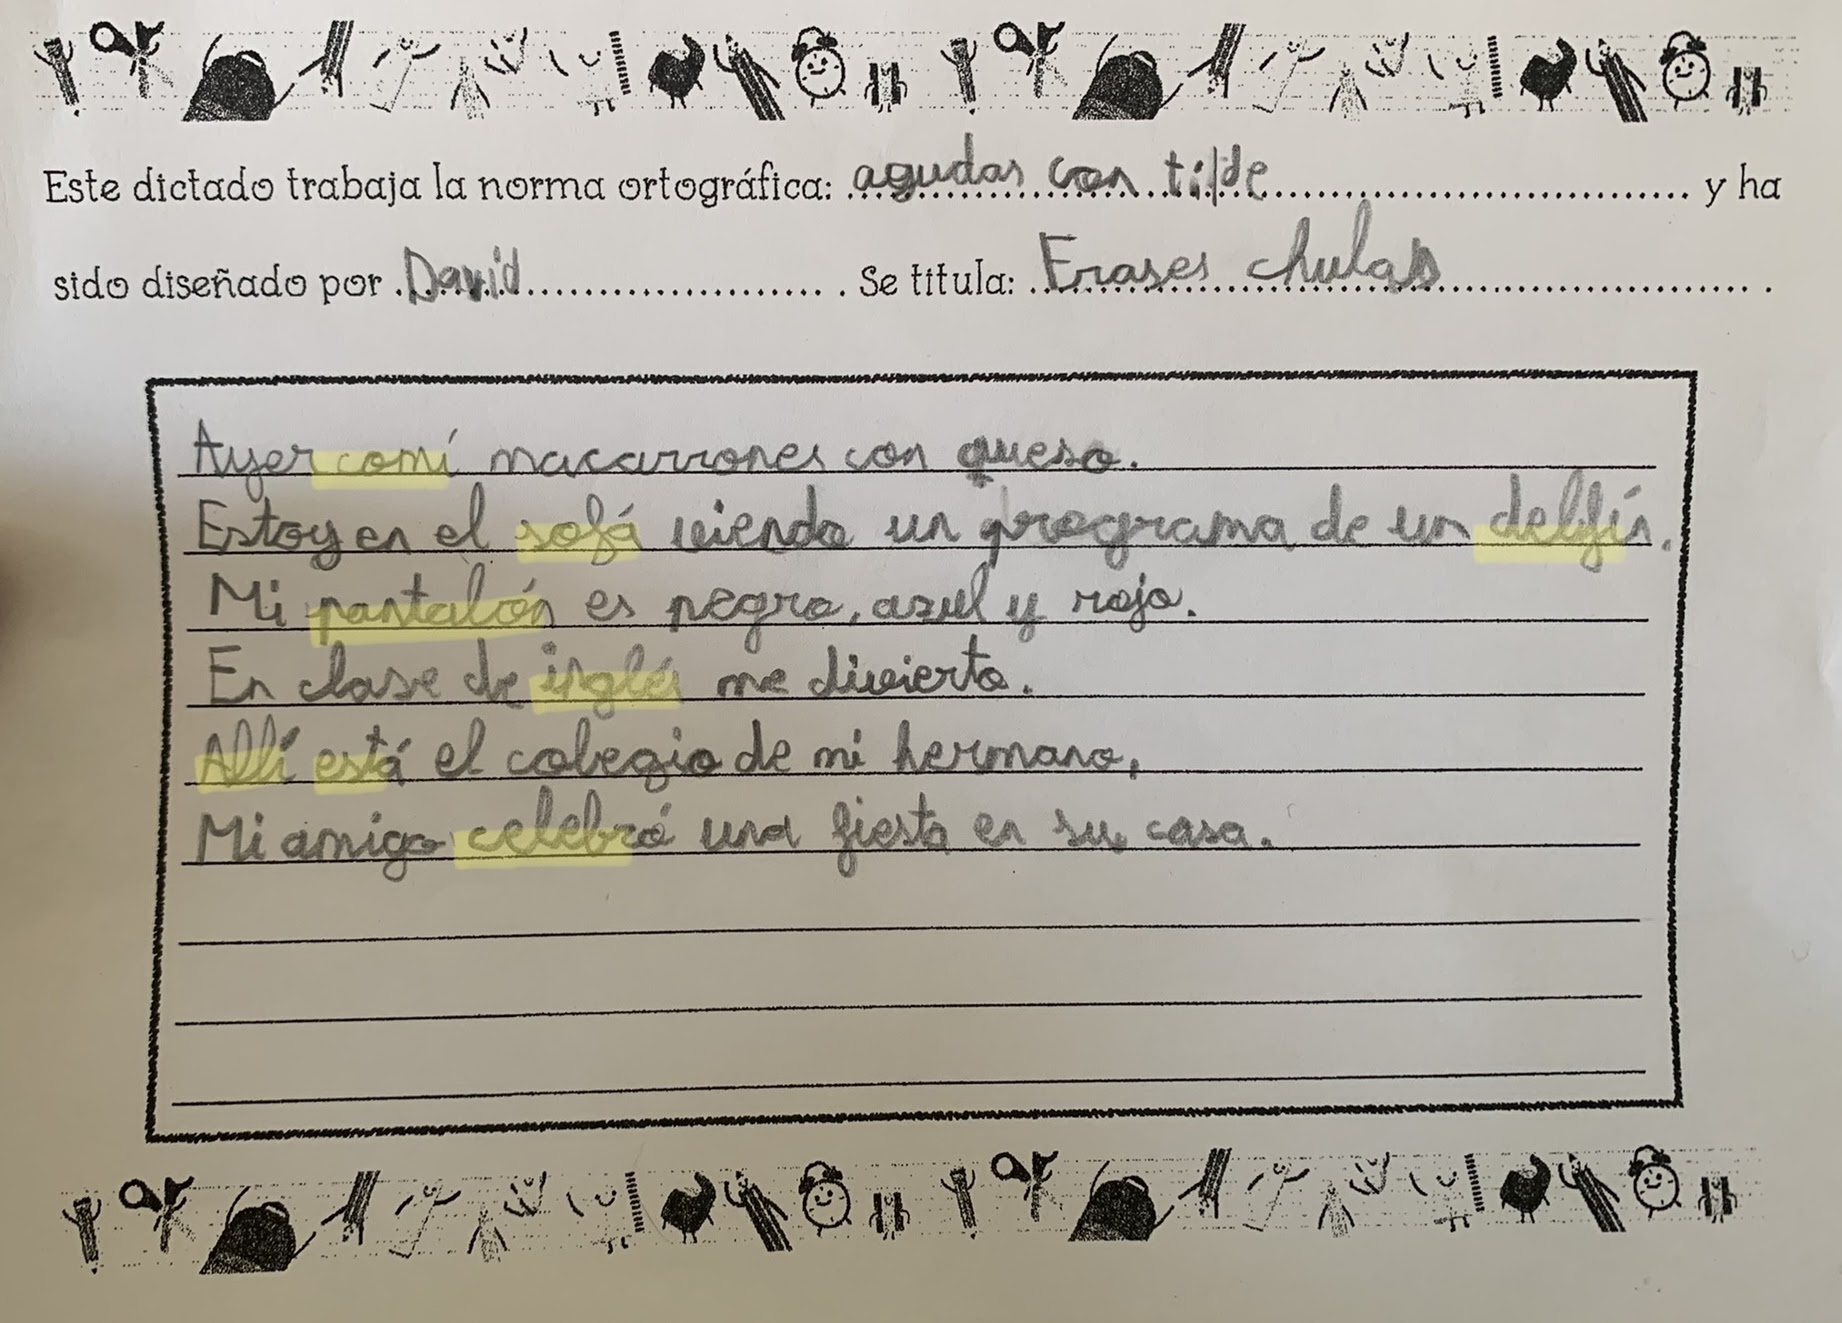 Este dictado trabaja la norma ortográfica: agudas con tilde y ha
sido diseñado por David. Se titula: Frases chulas.
Ayer comí macarrones con queso.
Estoy en el sofá viendo un programa de un delfín.
Mi pantalón es negro, azul y rojo.
En clase de inglés me divierto.
Allí está el colegio de mi hermano,
Mi amigo celebró una fiesta en su casa.